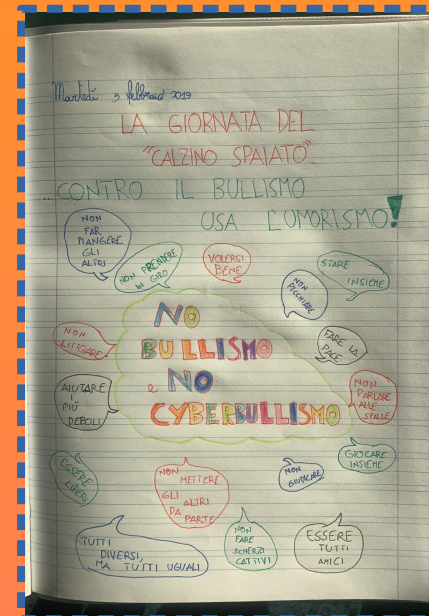 Martedì 5 febbraio 2019
LA GIORNATA DEL
"CALZINO SPAIATO"
...CONTRO IL BULLISMO
USA L'UMORISMO!
NON
FAR
PIANGERE
GLI
ALTRI
NON PRENDERE
IN GIRO
VOLERSI
BENE
NON
PICCHIARE
STARE
INSIEME
NON
LITIGARE
NO
BULLISMO
e NO
CYBERBULLISMO
FARE LA
PACE
AIUTARE
I
PIÙ
DEBOLI
NON
PARLARE
ALLE
SPALLE
ESSERE
LIBERI
NON
METTERE
GLI
ALTRI
DA
PARTE
NON
GIUDICARE
GIOCARE
INSIEME
TUTTI
DIVERSI,
MA TUTTI UGUALI
NON
FARE
SCHERZI
CATTIVI
ESSERE
TUTTI
AMICI